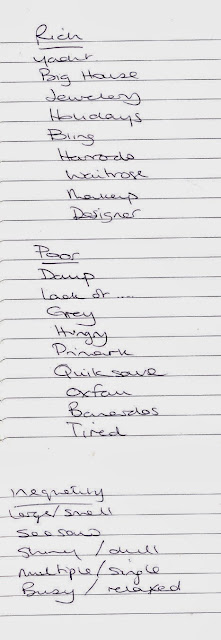 Rich
Yacht
Big House
Jewelery
Holidays
Bling
Harrods
Waitrose
Makeup
Designer
Poor
Damp
Lack of ....
Grey
Hungry
Primark
Quik save
Oxfam
Banardos
Tired
inequality
Large/small
See saw
Shiny / dull
multiple/single
Busy / relaxed